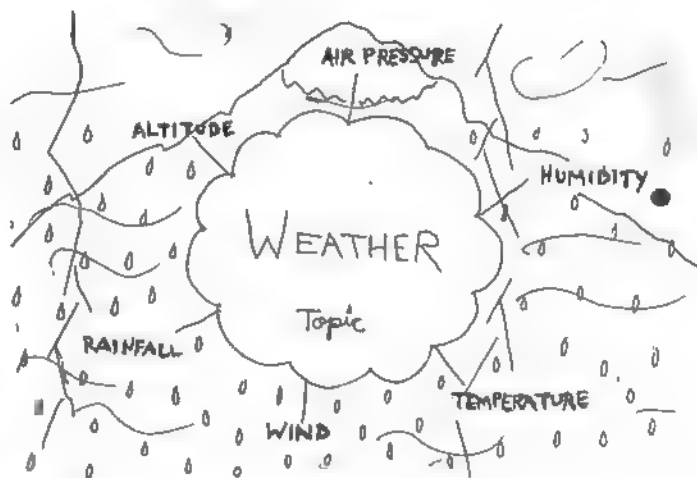 AIR PRESSURE
ALTITUDE
HUMIBITY
WEATHER
Topic
RAINFALL
TEMPERATURE
WIND